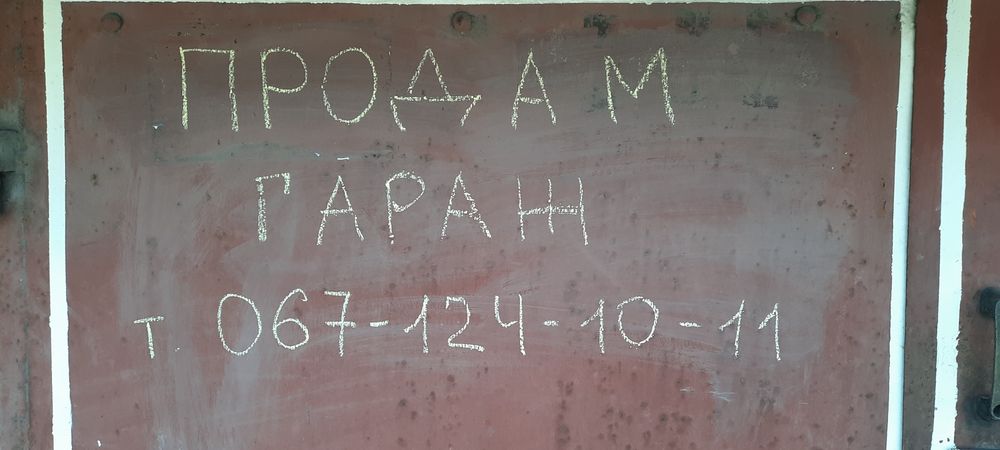 ПРОДАМ
ГАРАЖ
т. 067-124-10-11